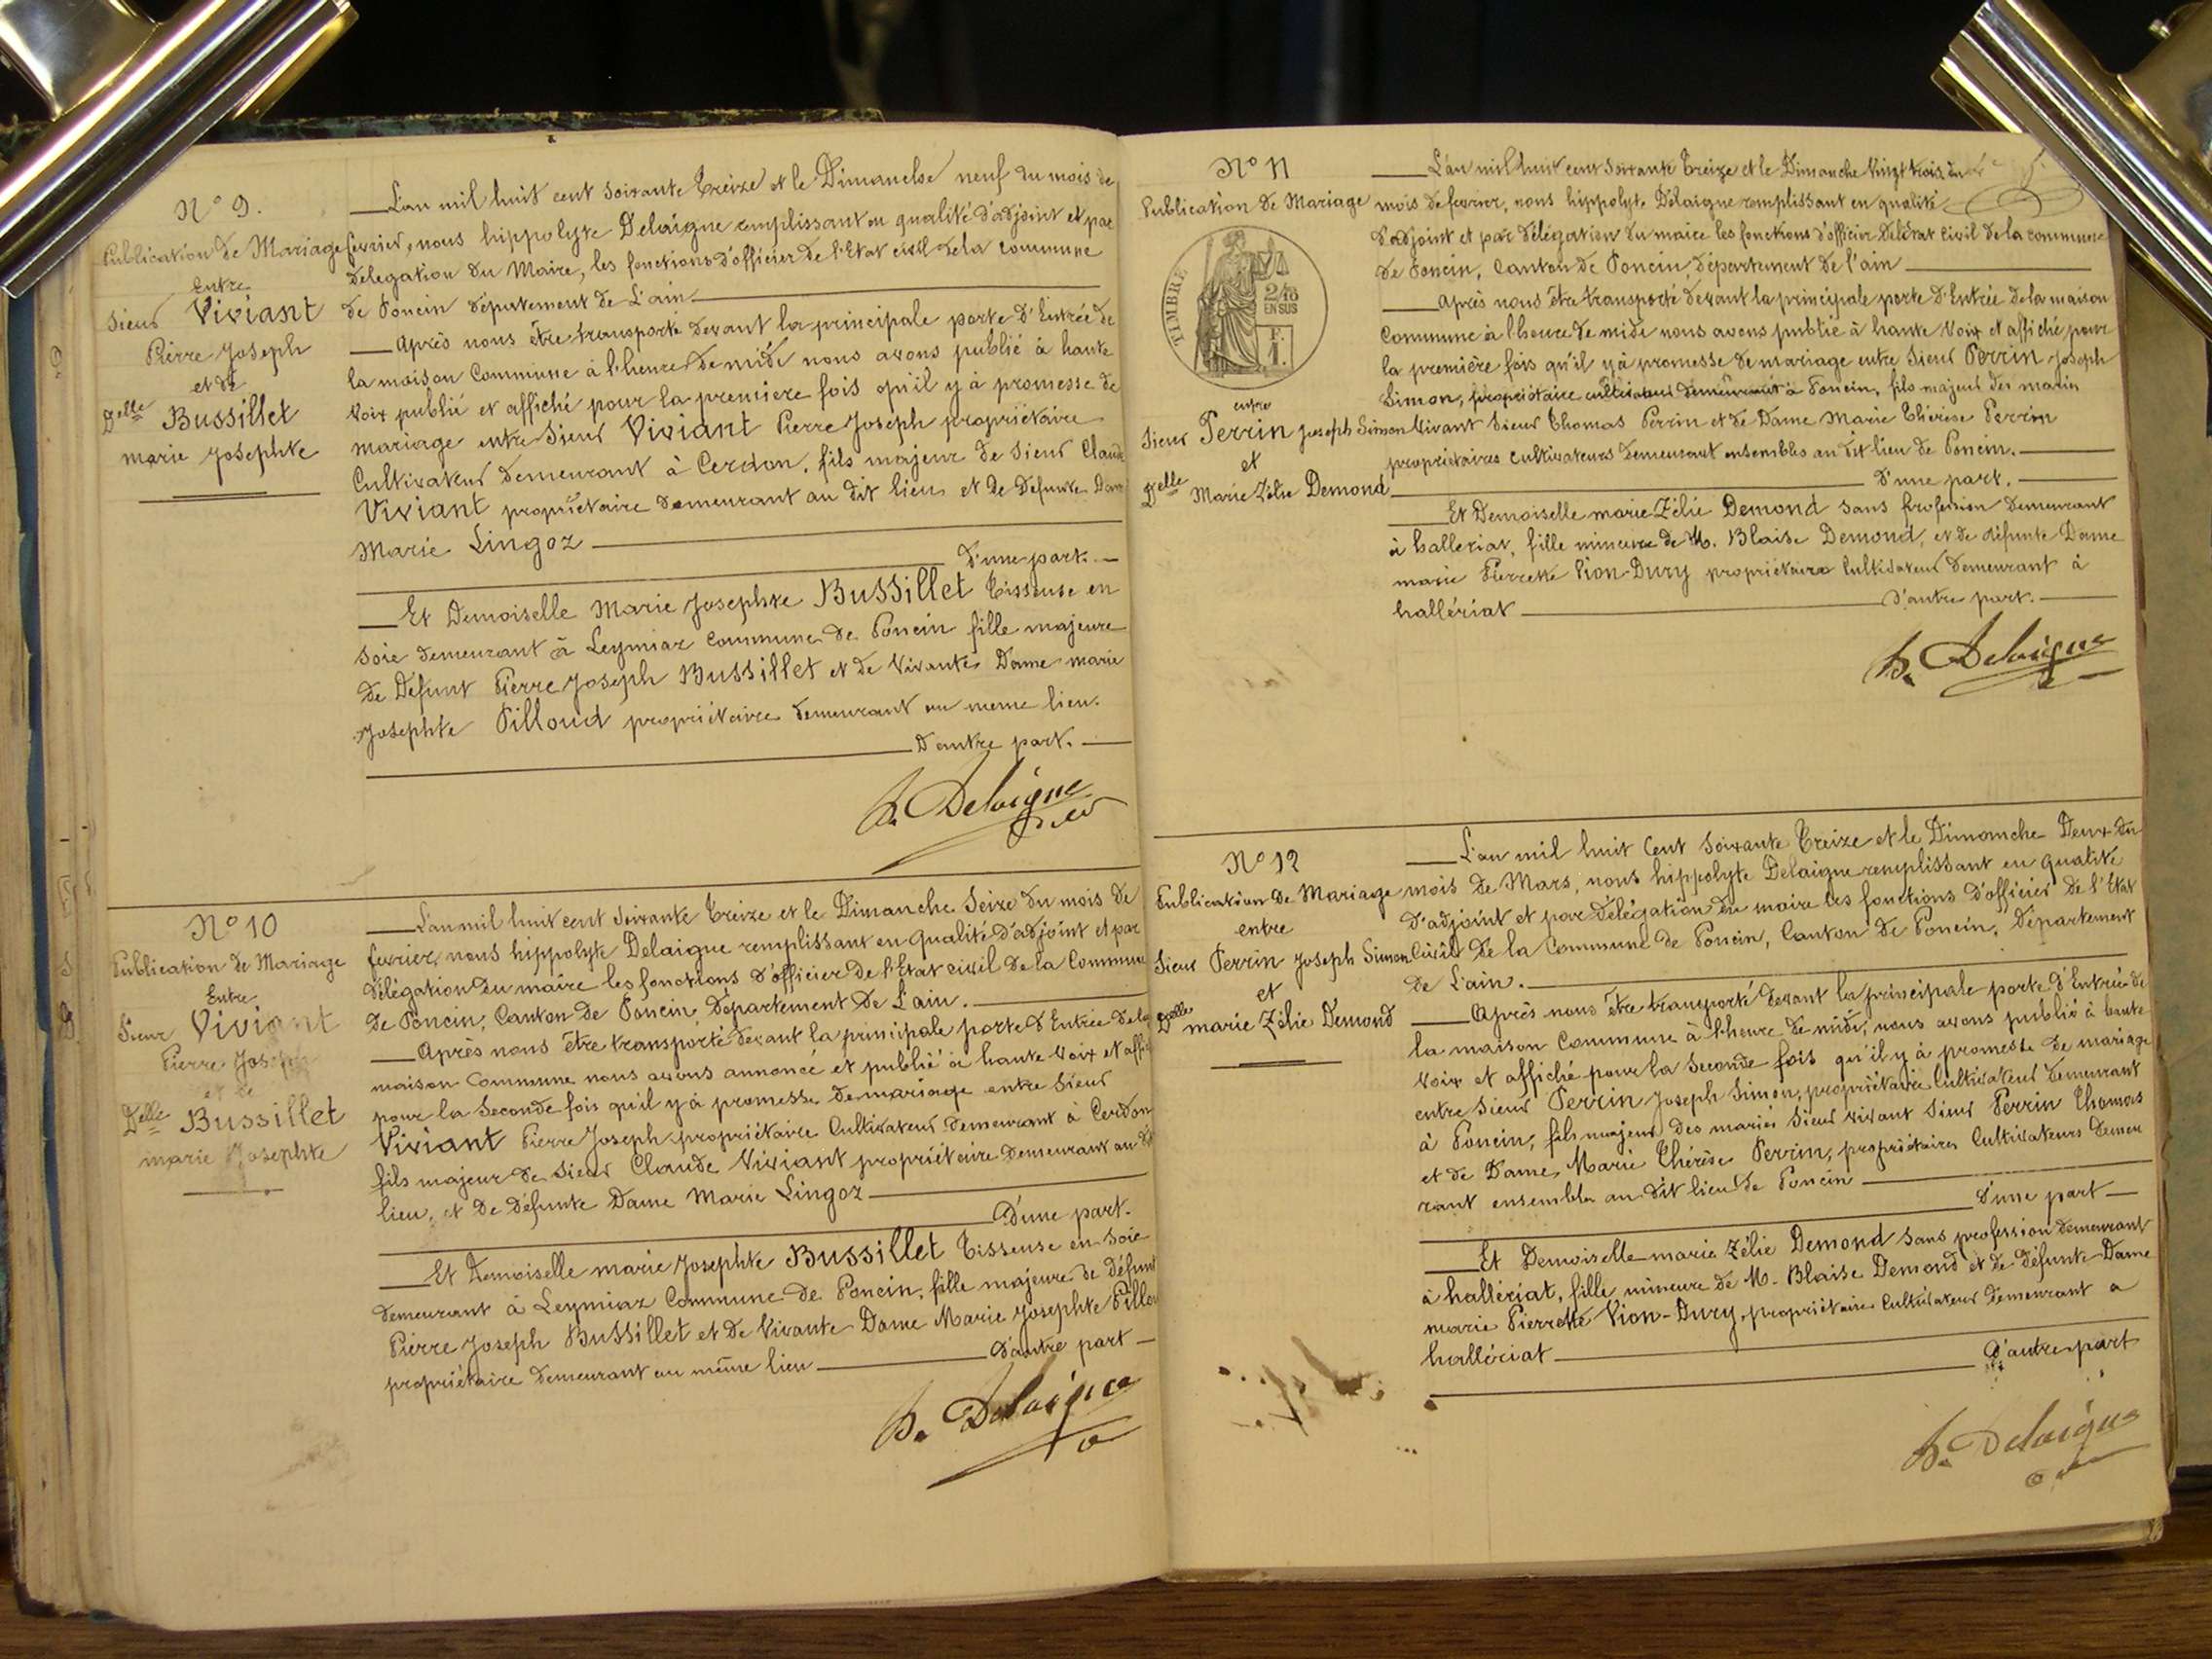 N° 9.
Publication de Mariage
Entre
Sieur Viviant
Pierre Joseph
et de
Delle Bussillet
marie Josephte
L'an mil huit cent soixante Treize et le Dimanche neuf du mois de
fevrier, nous hippolyte Delaigne remplissant en qualité d'adjoint et par
délégation du Maire, les fonctions d'officier de l'Etat civil de la commune
de Poncin département de L'ain
Après nous être transporté devant la principale porte d'Entrée de
la maison Commune à l'heure de midi nous avons publié à haute
voix publié et affiché pour la premiere fois qu'il y à promesse de
mariage entre Sieur Viviant Pierre Joseph propriétaire
Cultivateur demeurant à Cerdon, fils majeur de Sieur Claude
Viviant propriétaire demeurant au dit lieu et de Defunte Dame
Marie Lingoz
D'une part.
Et Demoiselle Marie Josephte Bussillet Tisseuse en
Soie demeurant à Leymiaz Commune de Poncin fille majeure
de Défunt Pierre Joseph Bussillet et de Vivante Dame marie
Josephte Pilloud propriétaire demeurant au meme lieu.
D'autre part.
h. Delaigne
N° 10
Publication de Mariage
Entre
Sieur Viviant
Pierre Joseph
et de
Delle Bussillet
marie Josephte
L'an mil huit cent soixante Treize et le Dimanche Seize du mois de
fevrier, nous hippolyte Delaigne remplissant en qualité d'adjoint et par
délégation du maire les fonctions d'officier de l'Etat civil de la Commune
de Poncin, Canton de Poncin, département de L'ain.
Après nous être transporté devant la principale porte d'Entrée de la
maison Commune nous avons annoncé et publié à haute Voix et affiché
pour la Seconde fois qu'il y à promesse de mariage entre Sieur
Viviant Pierre Joseph propriétaire Cultivateur demeurant à Cerdon
fils majeur de Sieur Claude Viviant propriétaire demeurant au dit
lieu, et de défunte Dame Marie Lingoz
D'une part.
Et Demoiselle marie Josephte Bussillet Tisseuse en Soie
demeurant à Leymiaz Commune de Poncin, fille majeure de Défunt
Pierre Joseph Bussillet et de Vivante Dame Marie Josephte Pilloud
propriétaire demeurant au même lieu
D'autre part
h. Delaigne
N° 11
Publication de Mariage
TIMBRE
2/10
EN SUS
F.
1.
entre
Sieur Perrin Joseph Simon
et
Delle Marie Zélie Demond
L'an mil huit cent soixante Treize et le Dimanche Vingt trois du
mois de fevrier, nous hippolyte Delaigne remplissant en qualité
d'adjoint et par délégation du maire les fonctions d'officier de l'état civil de la commune
de Poncin, Canton de Poncin, département de l'ain
Après nous être transporté devant la principale porte d'Entrée de la maison
Commune à l'heure de midi nous avons publié à haute Voix et affiché pour
la première fois qu'il y à promesse de mariage entre Sieur Perrin Joseph
Simon, propriétaire cultivateur demeurant à Poncin, fils majeur des mariés
Vivant Sieur Thomas Perrin et de Dame Marie Thérèse Perrin
propriétaires cultivateurs demeurant ensembles au dit lieu de Poncin.
D'une part.
Et Demoiselle marie Zélie Demond sans profession demeurant
à halleriat, fille mineure de M. Blaise Demond, et de défunte Dame
marie Pierrette Vion-Dury propriétaire Cultivateur demeurant à
hallériat
D'autre part.
h. Delaigne
N° 12
Publication de Mariage
entre
Sieur Perrin Joseph Simon
et
Delle marie Zélie Demond
L'an mil huit Cent soixante Treize et le Dimanche Deux du
mois de Mars, nous hippolyte Delaigne remplissant en qualité
d'adjoint et par délégation du maire les fonctions d'officier de l'Etat
Civil de la Commune de Poncin, Canton de Poncin, département
de L'ain.
Après nous être transporté devant la principale porte d'Entrée de
la maison Commune à l'heure de midi, nous avons publié à haute
voix et affiché pour la Seconde fois qu'il y à promesse de mariage
entre Sieur Perrin Joseph Simon, propriétaire Cultivateur demeurant
à Poncin, fils majeur des mariés Sieur vivant Sieur Perrin Thomas
et de Dame, Marie Thérèse Perrin, propriétaires Cultivateurs demeu
rant ensembles au dit lieu de Poncin
D'une part
Et Demoiselle marie Zélie Demond sans profession demeurant
à halleriat, fille mineure de M. Blaise Demond et de défunte Dame
marie Pierrette Vion-Dury, propriétaire Cultivateur demeurant a
hallériat
D'autre part
h. Delaigne